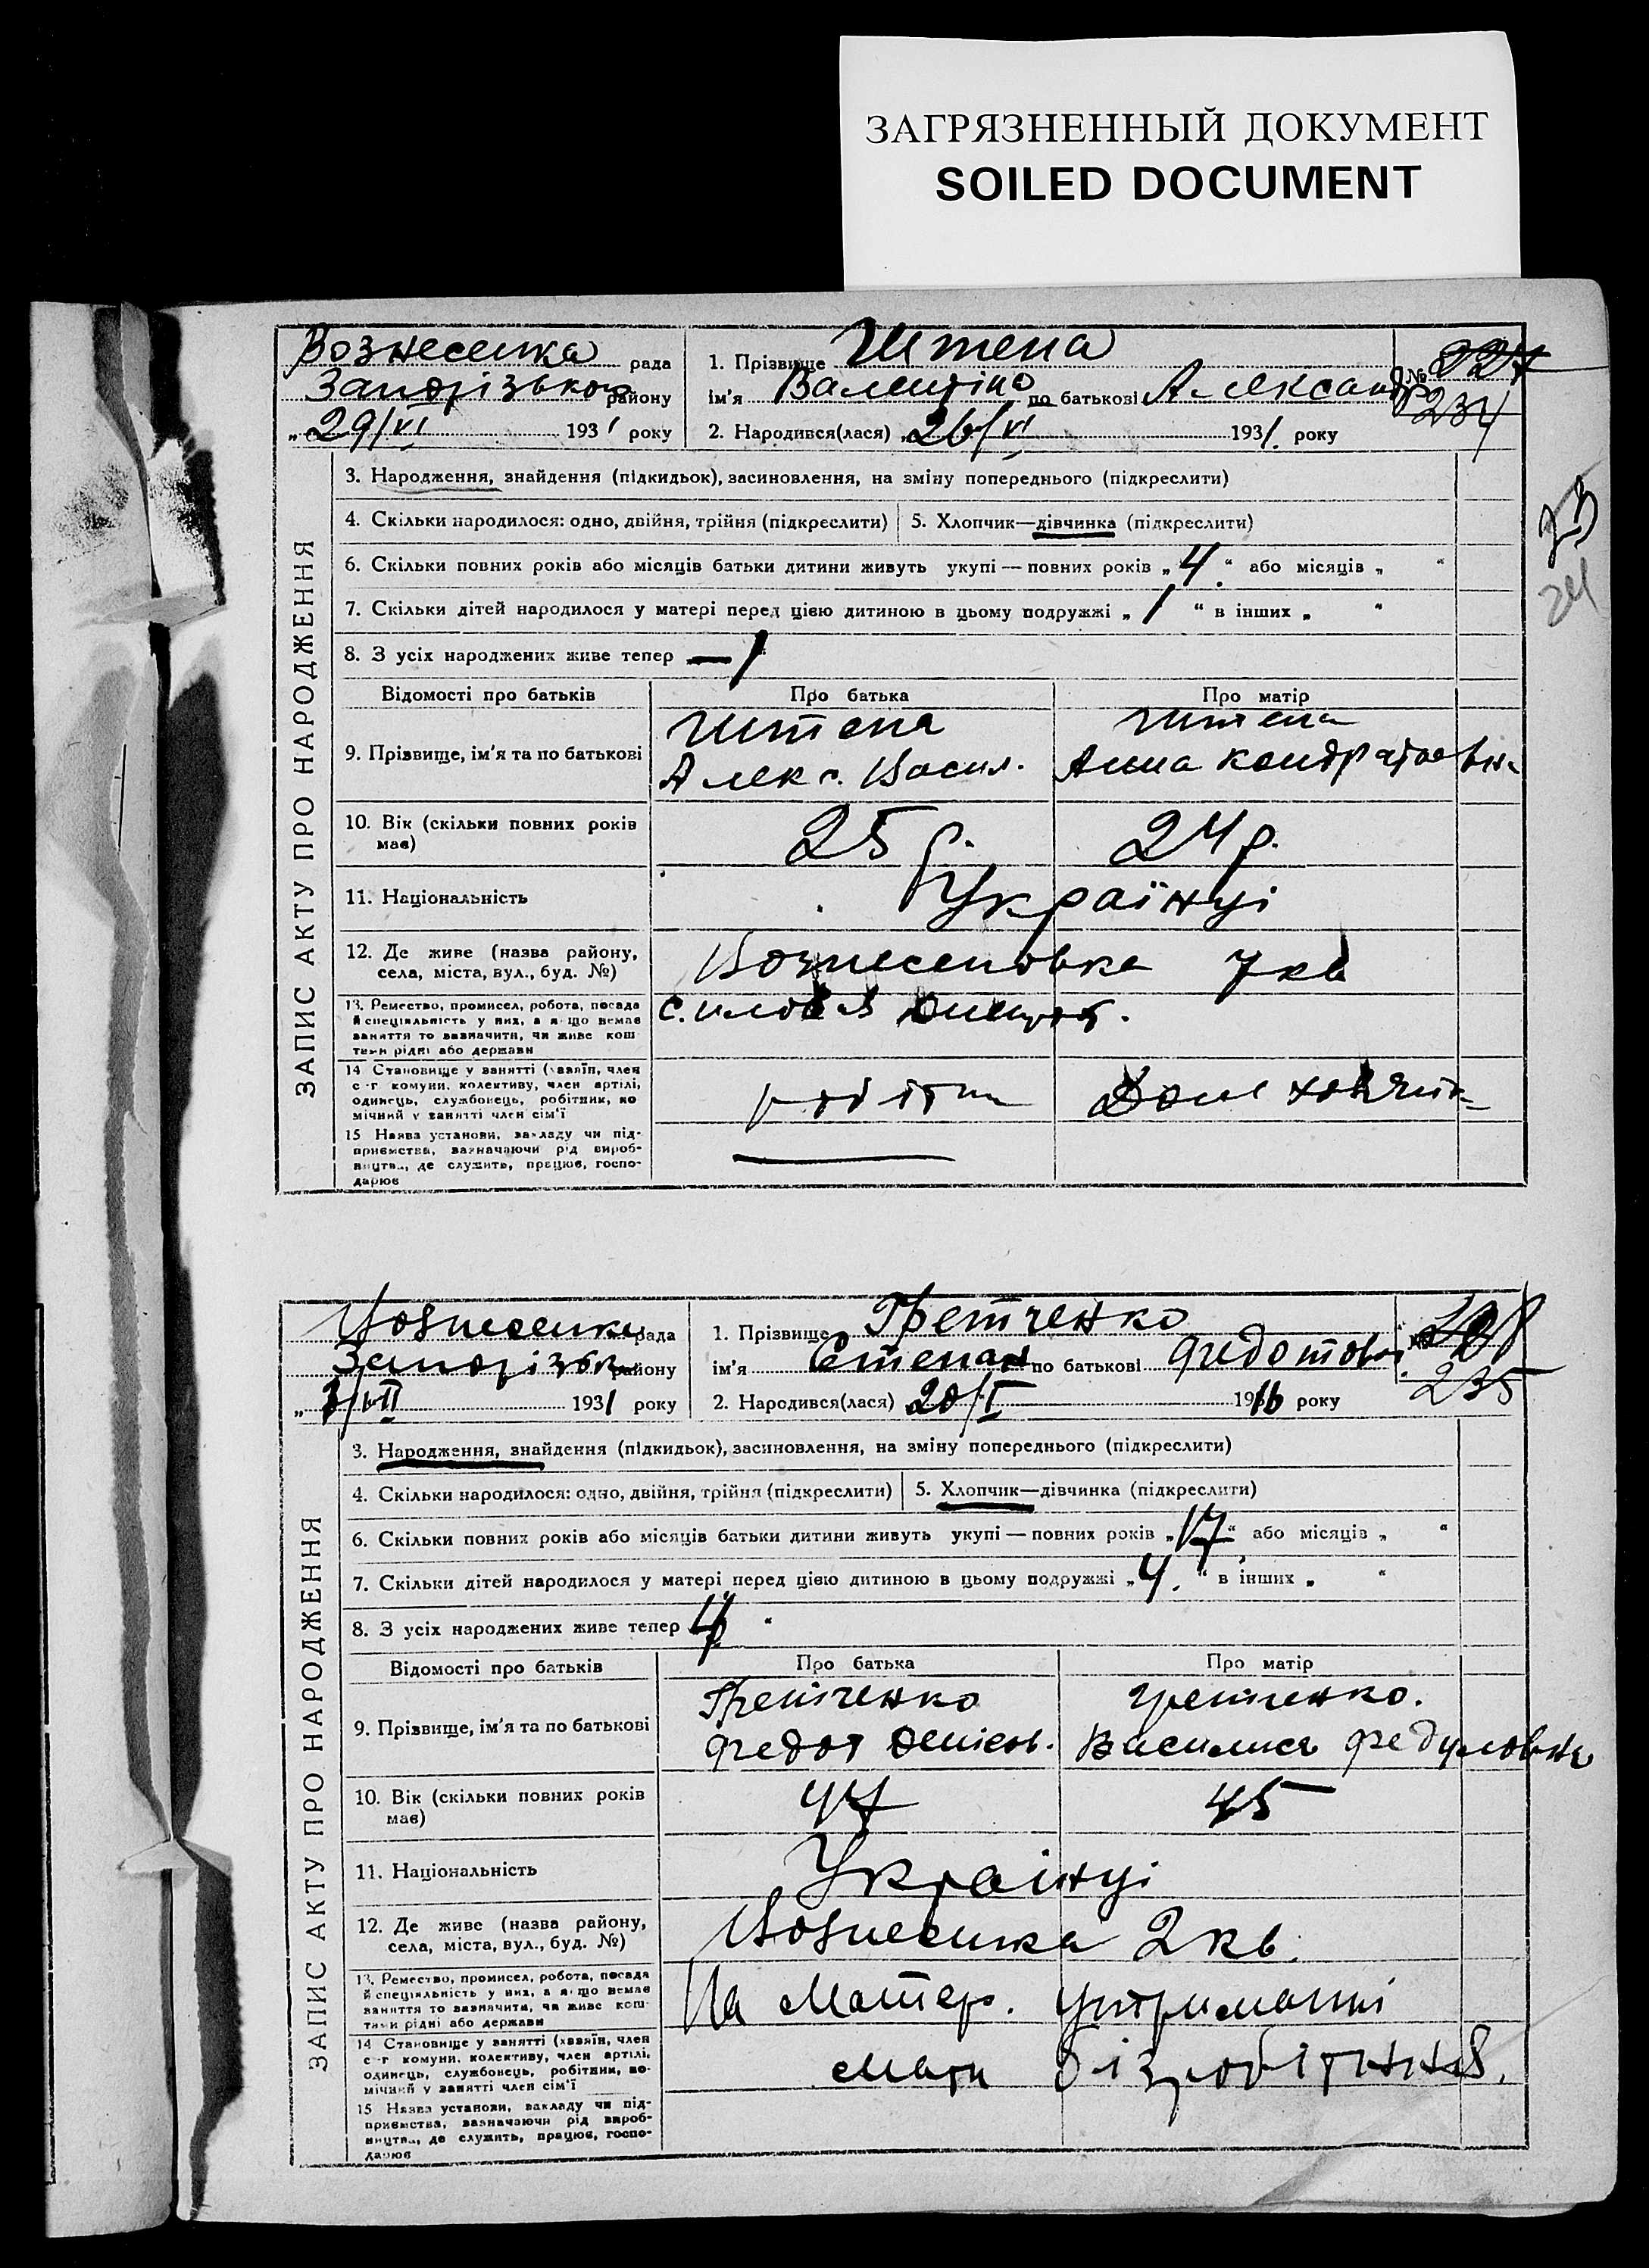 ЗАГРЯЗНЕННЫЙ ДОКУМЕНТ
SOILED DOCUMENT
Вознесенка рада
Запорізького району
„29/VI 1931 року
1. Прізвище Штепа
ім'я Валентіна по батькові Александр
2. Народився(лася) „26/VI 1931. року
№ 227
234
23
24
ЗАПИС АКТУ ПРО НАРОДЖЕННЯ
3. Народження, знайдення (підкидьок), засиновлення, на зміну попереднього (підкреслити)
4. Скільки народилося: одно, двійня, трійня (підкреслити) 5. Хлопчик—дівчинка (підкреслити)
6. Скільки повних років або місяців батьки дитини живуть укупі — повних років „4“ або місяців „ “
7. Скільки дітей народилося у матері перед цією дитиною в цьому подружжі „1“ в інших „ “
8. З усіх народжених живе тепер — 1
Відомості про батьків Про батька Про матір
9. Прізвище, ім'я та по батькові
Штепа
Алекс. Васил.
Штепа
Анна Кондратовн.
10. Вік (скільки повних років
має)
25 р. 24 р.
11. Національність Українці
12. Де живе (назва району,
села, міста, вул., буд. №)
Вознесеновка 7 кв
13. Ремество, промисел, робота, посада
й спеціяльність у них, а якщо немає
заняття то зазначити, чи живе кош-
тами рідні або держави
14 Становище у занятті (хазяїн, член
с-г комуни, колективу, член артілі,
одинець, службовець, робітник, по-
мічний у занятті член сім'ї
Дом хазяйка
15 Назва установи, закладу чи під-
приємства, зазначаючи рід вироб-
ництва, де служить, працює, госпо-
дарює
Вознесенка рада
Запорізьк району
„3/VII 1931 року
1. Прізвище Гретченко
ім'я Степан по батькові Федотов
2. Народився(лася) 20/I 1916 року
№
235
ЗАПИС АКТУ ПРО НАРОДЖЕННЯ
3. Народження, знайдення (підкидьок), засиновлення, на зміну попереднього (підкреслити)
4. Скільки народилося: одно, двійня, трійня (підкреслити) 5. Хлопчик—дівчинка (підкреслити)
6. Скільки повних років або місяців батьки дитини живуть укупі — повних років „17“ або місяців „ “
7. Скільки дітей народилося у матері перед цією дитиною в цьому подружжі „4.“ в інших „ “
8. З усіх народжених живе тепер 4 “
Відомості про батьків Про батька Про матір
9. Прізвище, ім'я та по батькові
Гретченко
Федот Денісов.
Гретченко.
Василиса Федуловна
10. Вік (скільки повних років
має)
47 45
11. Національність Українці
12. Де живе (назва району,
села, міста, вул., буд. №)
Вознесенка 2 кв.
13. Ремество, промисел, робота, посада
й спеціяльність у них, а якщо немає
заняття то зазначити, чи живе кош-
тами рідні або держави
На Матер. утриманні
14 Становище у занятті (хазяїн, член
с-г комуни, колективу, член артілі,
одинець, службовець, робітник, по-
мічний у занятті член сім'ї
мати
15 Назва установи, закладу чи під-
приємства, зазначаючи рід вироб-
ництва, де служить, працює, госпо-
дарює